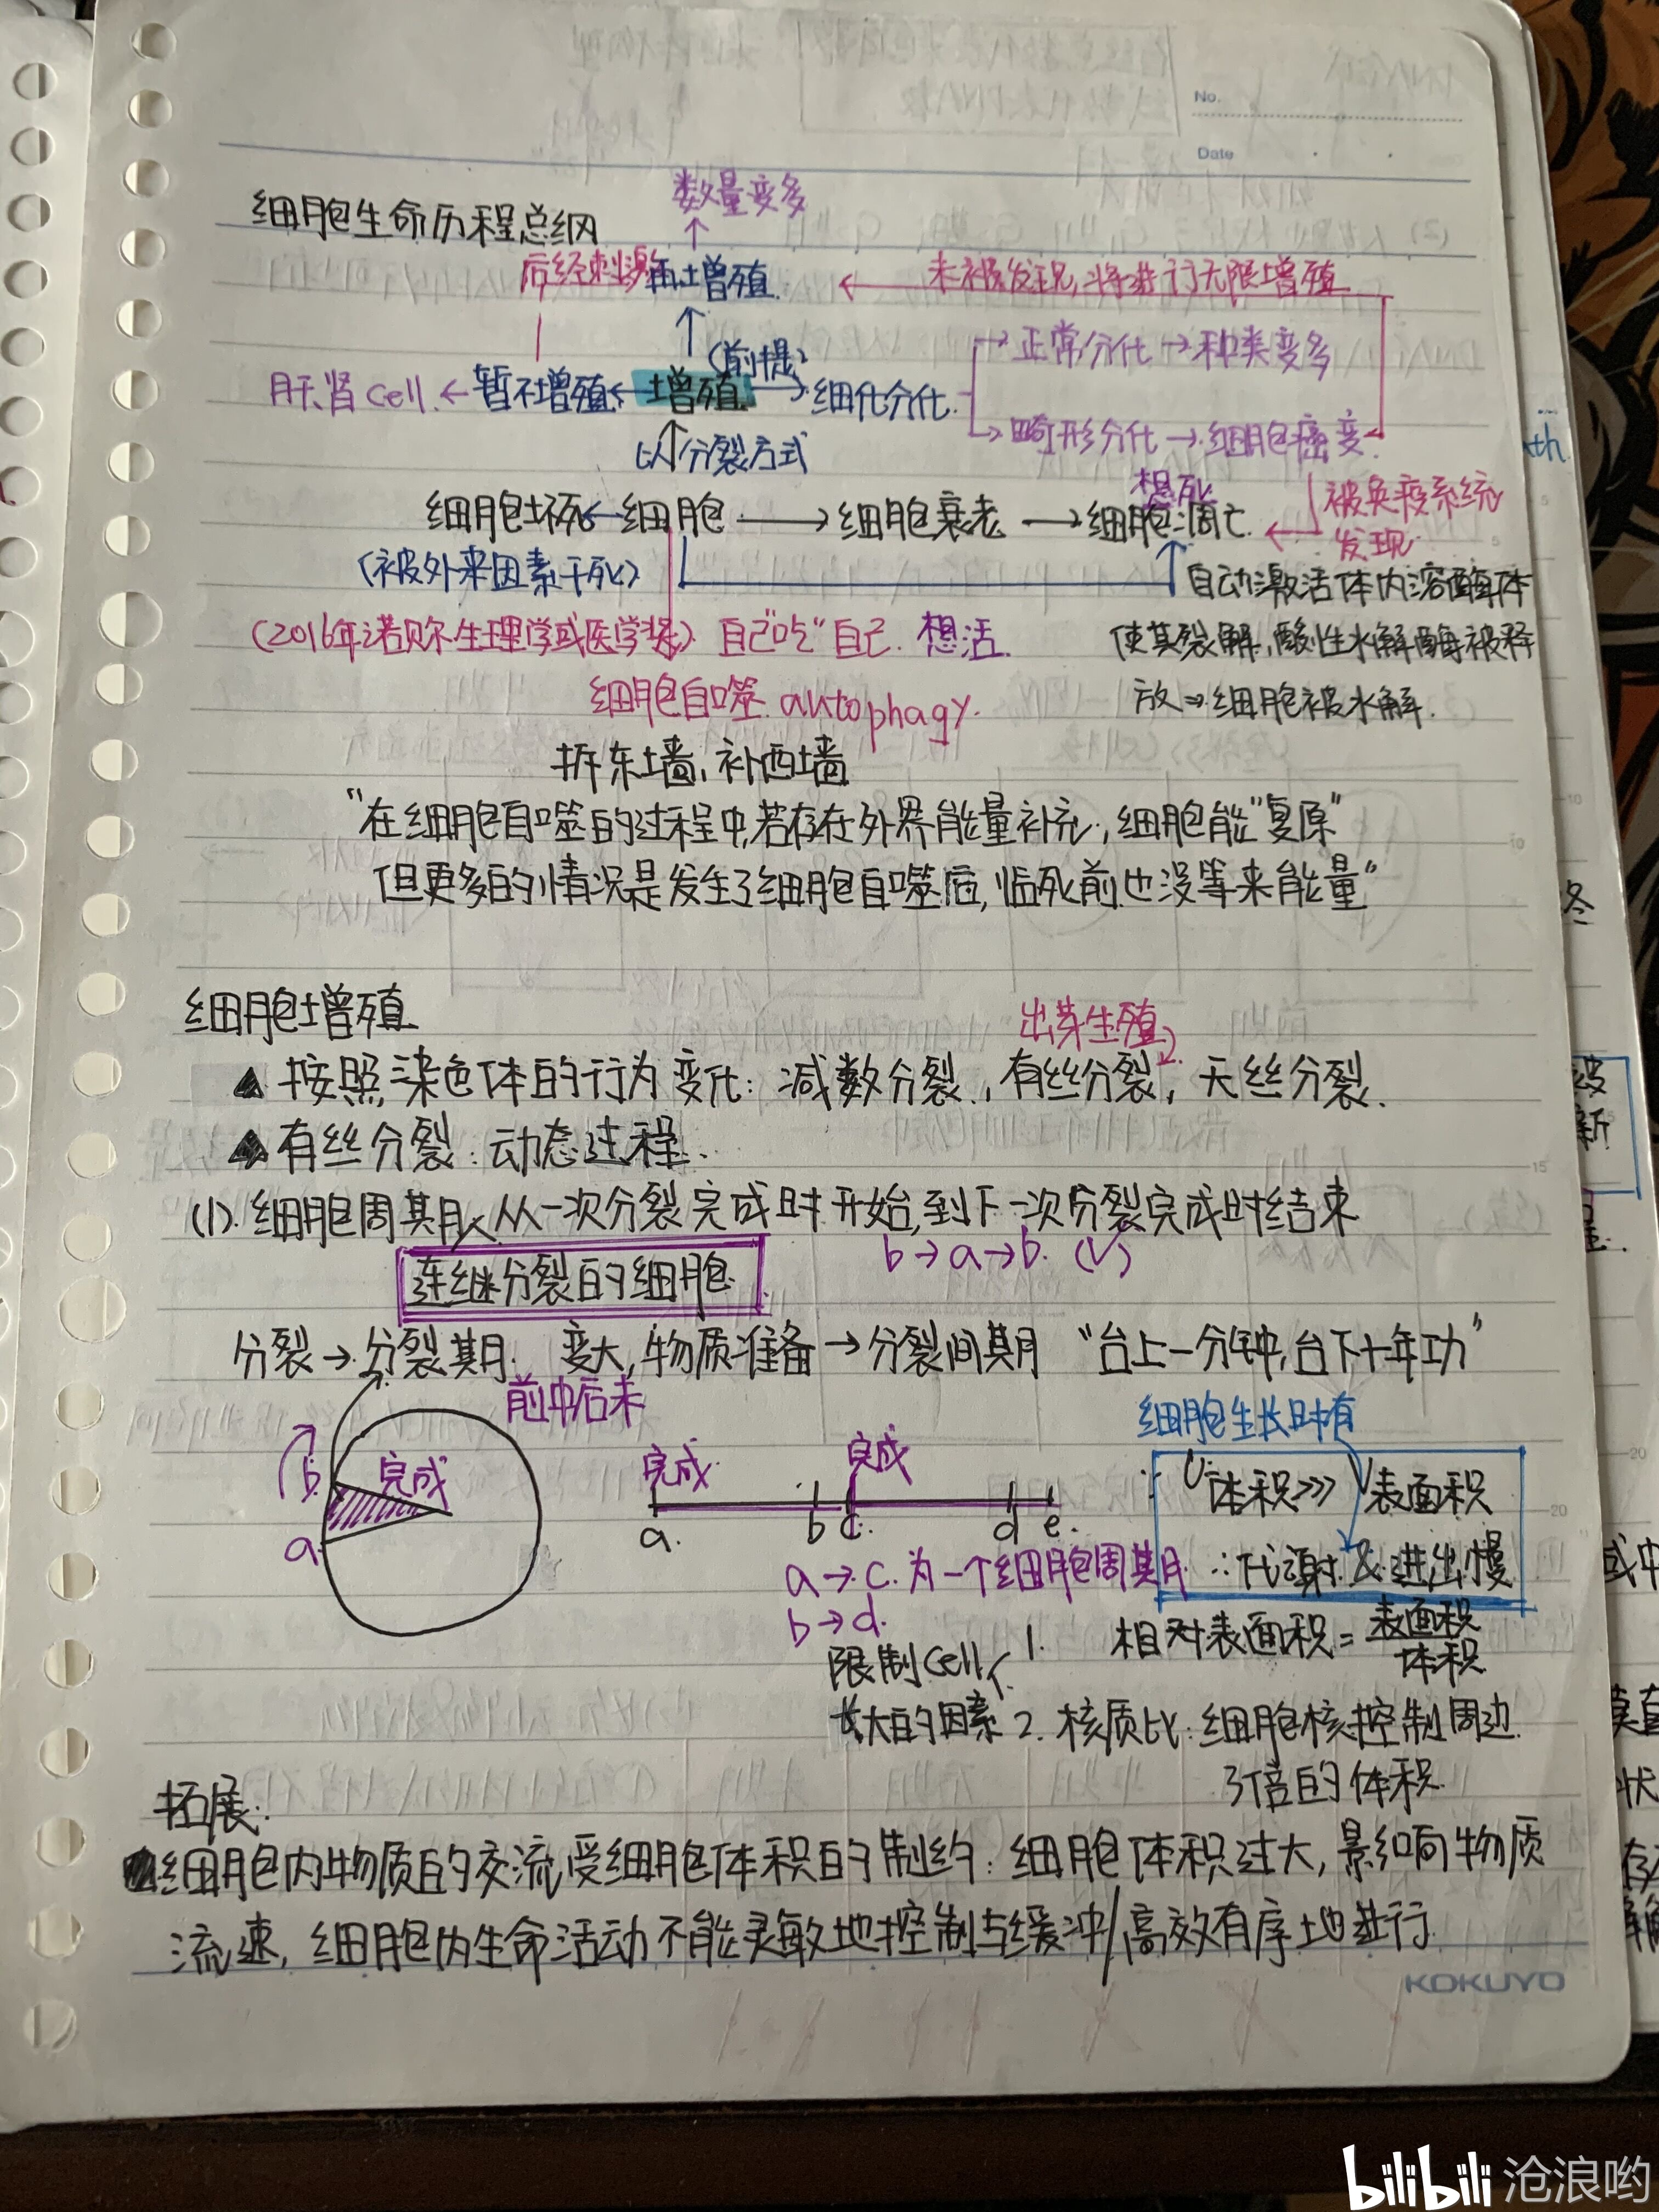 No.
Date
数量变多
细胞生命历程总纲
后经刺激 再增殖 ← 未被发现,将进行无限增殖
(前提) → 正常分化 → 种类变多
肝.肾cell ← 暂不增殖 ← 增殖 → 细化分化
→ 畸形分化 → 细胞癌变
以分裂方式
想死
细胞坏死 ← 细胞 → 细胞衰老 → 细胞凋亡 ← 被免疫系统
发现
(被外来因素干死)
自动激活体内溶酶体
(2016年诺贝尔生理学或医学奖) 自己"吃"自己. 想活.
使其裂解,酸性水解酶被释
细胞自噬 autophagy.
放⇒细胞被水解.
拆东墙,补西墙
"在细胞自噬的过程中,若存在外界能量补充,细胞能"复原"
但更多的情况是发生了细胞自噬后,临死前也没等来能量"
细胞增殖
出芽生殖
▲ 按照染色体的行为变化: 减数分裂,有丝分裂,无丝分裂.
▲ 有丝分裂:动态过程.
(1).细胞周期 从一次分裂完成时开始,到下一次分裂完成时结束
b→a→b. (√)
连继分裂的细胞
分裂→分裂期. 变大,物质准备→分裂间期 "台上一分钟,台下十年功"
前中后末
细胞生长时有
完成 完成
b 完成
∵ 体积>>> 表面积
a. b c. d e.
a
a→c.为一个细胞周期
∴代谢 & 进出慢
b→d.
限制cell 1. 相对表面积=表面积
体积
长大的因素 2. 核质比:细胞核控制周边
3倍的体积.
拓展:
细胞内物质的交流受细胞体积的制约: 细胞体积过大,影响物质
流速,细胞内生命活动不能灵敏地控制与缓冲/高效有序地进行.
KOKUYO
bilibili 沧浪哟